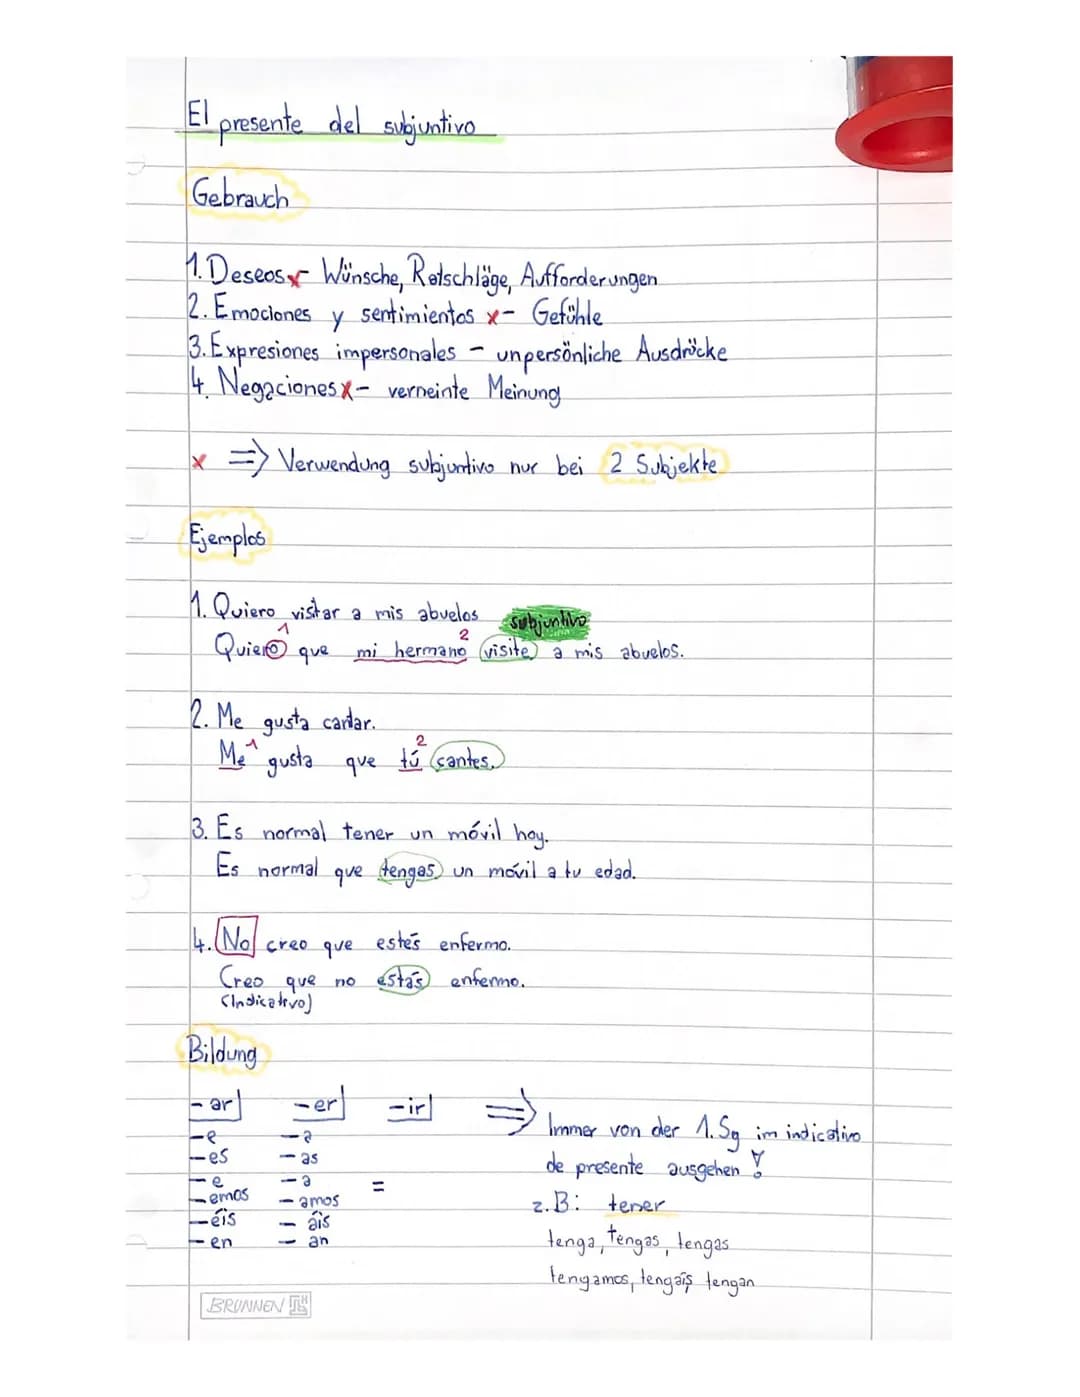 El presente del subjuntivo
Gebrauch
1. Deseos x- Wünsche, Ratschläge, Aufforderungen
2. Emociones y sentimientos x- Gefühle
3. Expresiones impersonales - unpersönliche Ausdrücke
4. Negaciones x- verneinte Meinung
x => Verwendung subjuntivo nur bei 2 Subjekte
Ejemplos
1. Quiero visitar a mis abuelos subjuntivo
1 2
Quiero que mi hermano visite a mis abuelos.
2. Me gusta cantar.
1 2
Me gusta que tú cantes.
3. Es normal tener un móvil hoy.
Es normal que tengas un móvil a tu edad.
4. No creo que estés enfermo.
Creo que no estás enfermo.
(Indicativo)
Bildung
-ar -er -ir => Immer von der 1. Sg im indicativo
-e -a
-es -as de presente ausgehen !
-e -a =
-emos -amos z.B: tener
-éis - áis
-en - an tenga, tengas, tengas
tengamos, tengáis, tengan
BRUNNEN